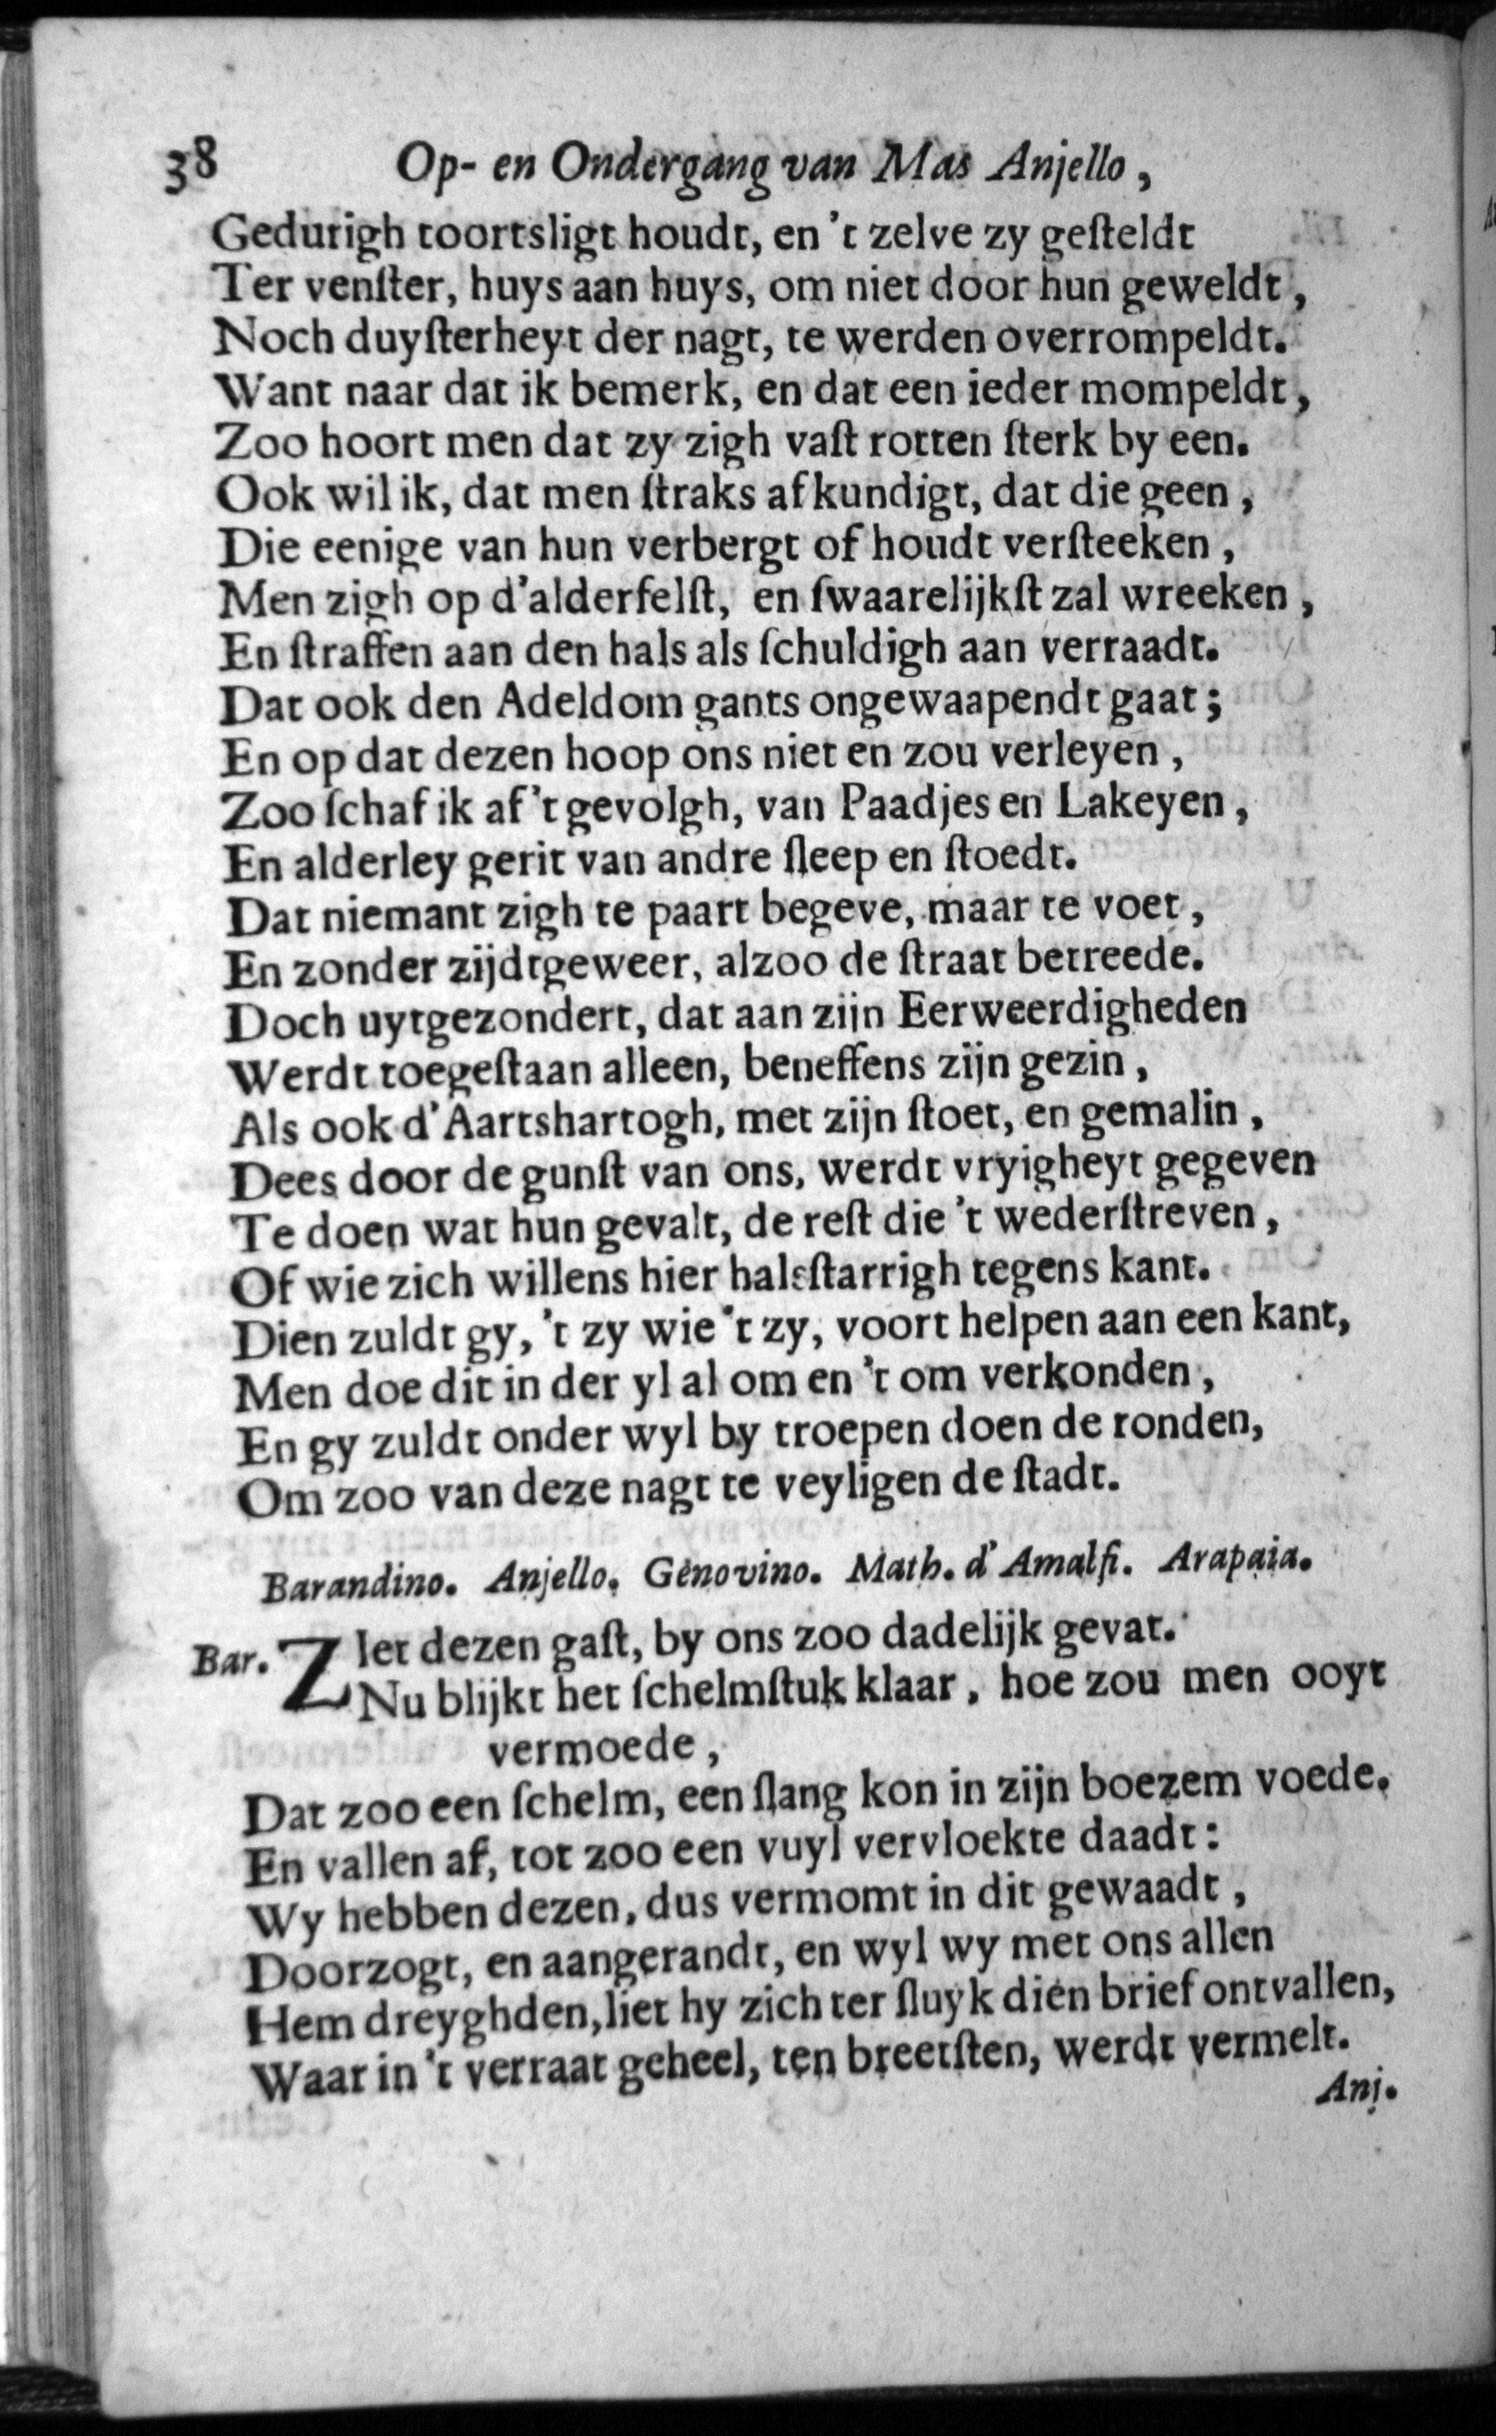 38 Op- en Ondergang van Mas Anjello,
Gedurigh toortsligt houdt, en 't zelve zy geſteldt
Ter venſter, huys aan huys, om niet door hun geweldt,
Noch duyſterheyt der nagt, te werden overrompeldt.
Want naar dat ik bemerk, en dat een ieder mompeldt,
Zoo hoort men dat zy zigh vaſt rotten ſterk by een.
Ook wil ik, dat men ſtraks afkundigt, dat die geen,
Die eenige van hun verbergt of houdt verſteeken,
Men zigh op d'alderfelſt, en ſwaarelijkſt zal wreeken,
En ſtraffen aan den hals als ſchuldigh aan verraadt.
Dat ook den Adeldom gants ongewaapendt gaat;
En op dat dezen hoop ons niet en zou verleyen,
Zoo ſchaf ik af 't gevolgh, van Paadjes en Lakeyen,
En alderley gerit van andre ſleep en ſtoedt.
Dat niemant zigh te paart begeve, maar te voet,
En zonder zijdtgeweer, alzoo de ſtraat betreede.
Doch uytgezondert, dat aan zijn Eerweerdigheden
Werdt toegeſtaan alleen, beneffens zijn gezin,
Als ook d'Aartshartogh, met zijn ſtoet, en gemalin,
Dees door de gunſt van ons, werdt vryigheyt gegeven
Te doen wat hun gevalt, de reſt die 't wederſtreven,
Of wie zich willens hier halsſtarrigh tegens kant.
Dien zuldt gy, 't zy wie 't zy, voort helpen aan een kant,
Men doe dit in der yl al om en 't om verkonden,
En gy zuldt onder wyl by troepen doen de ronden,
Om zoo van deze nagt te veyligen de ſtadt.
Barandino. Anjello. Genovino. Math. d'Amalfi. Arapaia.
Bar. ZIet dezen gaſt, by ons zoo dadelijk gevat.
Nu blijkt het ſchelmſtuk klaar, hoe zou men ooyt
vermoede,
Dat zoo een ſchelm, een ſlang kon in zijn boezem voede.
En vallen af, tot zoo een vuyl vervloekte daadt:
Wy hebben dezen, dus vermomt in dit gewaadt,
Doorzogt, en aangerandt, en wyl wy met ons allen
Hem dreyghden, liet hy zich ter ſluyk dien brief ontvallen,
Waar in 't verraat geheel, ten breetſten, werdt vermelt.
Anj.